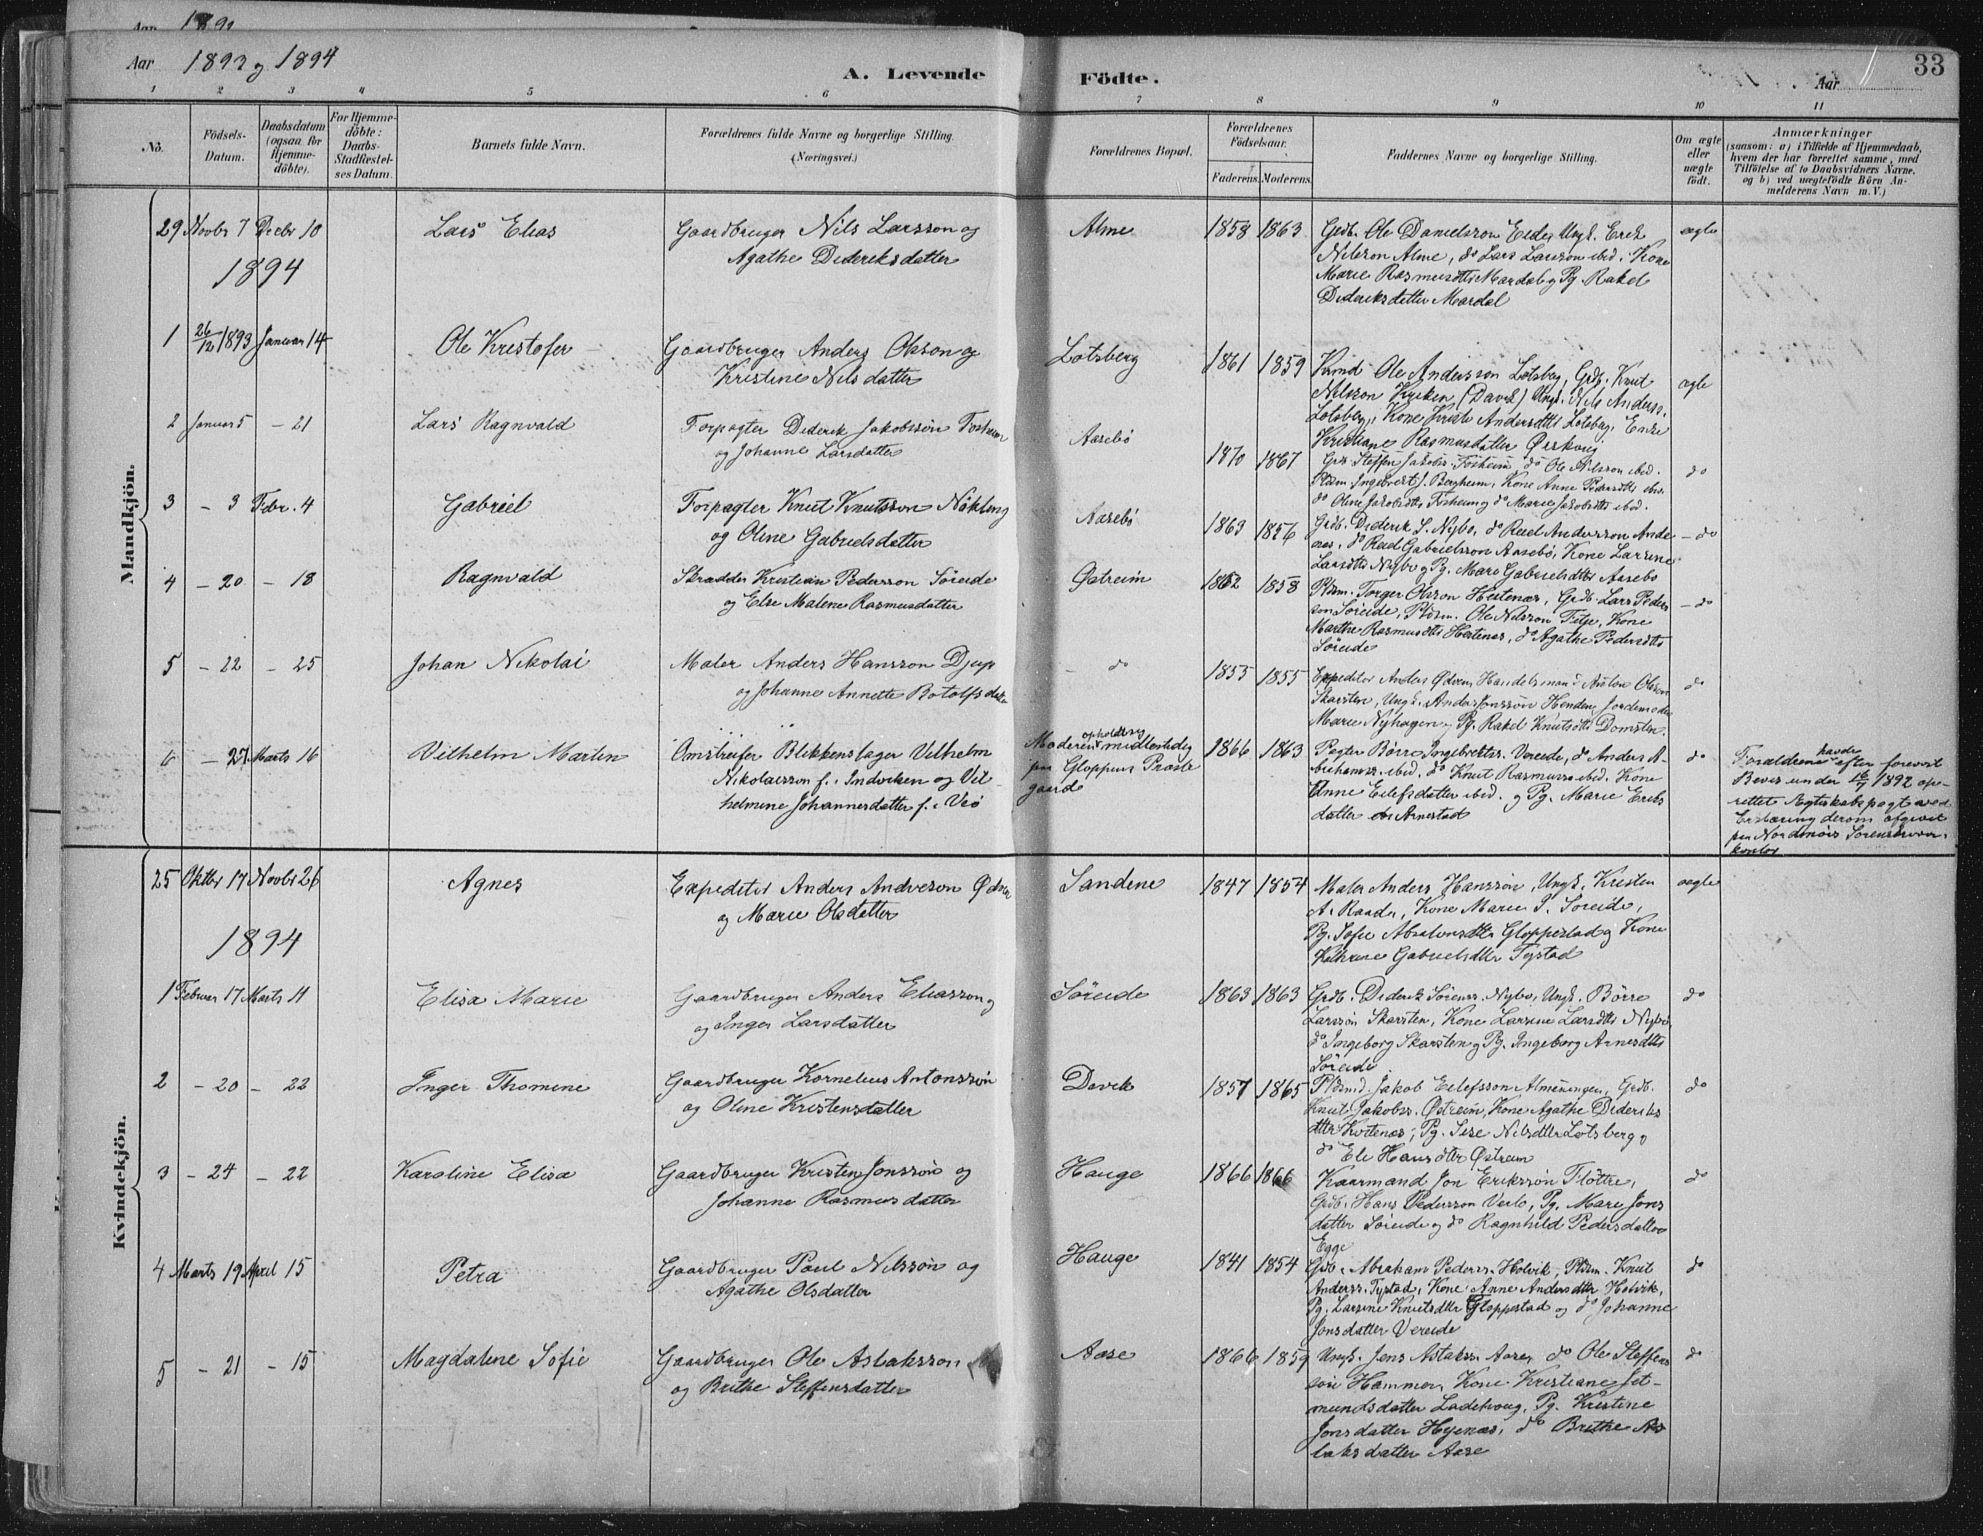 Aar 1893 og 1894
A. Levende Födte.
Aar
33
1 2 3 4 5 6 7 8 9 10 11
No.
Födsels-Datum.
Daabsdatum (ogsaa for Hjemme-döbte).
For Hjemme-döbte: Daabs-Stadfæstel-ses Datum.
Barnets fulde Navn.
Forældrenes fulde Navne og borgerlige Stilling. (Næringsvei.)
Forældrenes Bopæl.
Forældrenes Födselsaar.
Faderens. Moderens.
Faddernes Navne og borgerlige Stilling.
Om ægte eller uægte födt.
Anmærkninger
(saasom: a) i Tilfælde af Hjemmedaab, hvem der har forrettet samme, med Tilföielse af to Daabsvidners Navne, og b) ved uægtefödte Börn An-melderens Navn m. V.)
Mandkjön.
29 Novbr 7 Decbr 10 Lars Elias Gaardbruger Nils Larsson og
Agathe Dideriksdatter
Alme 1858 1863 Grdb. Ole Danielsson Eide, Ungk. Erik
Nilsson Alme, do Lars Larsson ibid. Kone
Marie Rasmusdtr Mardal og Pg. Rakel
Dideriksdatter Mardal
ægte
1894
1 26/12 1893 Januar 14 Ole Kristofer Gaardbruger Anders Olsson og
Kristine Nilsdatter
Lotsberg 1861 1859 Kmd. Ole Andersson Lotsberg, Grdb. Knut
Nilsson Kviken (Davik) Ungk. Nils Anderss.
Lotsberg, Kone Andersdtr Lotsberg, Enke
Kristiane Rasmusdatter
ægte
2 Januar 5 - 21 Lars Ragnvald Forpagter Diderik Jakobsson Fosheim
og Johanne Larsdatter
Aasebö 1870 1867 Grdb. Steffen Jakobs. Fosheim do Ole Nilsson ibid.
Pldsm. Ingebrigt J. Bergheim, Kone Anne Pedersdtr ibid.
do Oline Jakobsdtr Fosheim og do Marie Jakobsdtr ibid.
do
3 - 3 Febr. 4 Gabriel Forpagter Knut Knutsson Nökling
og Oline Gabrielsdatter
Aasebö 1863 1856 Grdb. Diderik S. Nybö, do Andersson
do Gabrielsson Aasebö, Kone Larsine
Larsdtr Nybö og Pg. Mari Gabrielsdtr Aasebö
- do
4 - 20 - 18 Ragnvald Skrædder Kristian Pedersson Söreide
og Else Malene Rasmusdatter
Östreim 1862 1858 Pldsm. Torger Olsson Hestenæs, Grdb. Lars Peders
son Söreide, Pldsm. Ole Nilsson Felje, Kone
Marthe Rasmusdtr Hestenæs, do Agathe Pedersdtr
Söreide
- do
5 - 22 - 25 Johan Nikolai Maler Anders Hansson Djup
og Johanne Annette Botolfsdatter
- do 1853 1855 Expeditör Anders Ödven, Handelsmand Anton Olsson
Skarsten, Ungk. Anders Jonsson Henden, Jordemoder
Marie Nyhagen, Pg. Rakel Knutsdtr Domsten
do
6 - 27 Marts 16 Vilhelm Martin Omstreifer Blikkenslager Vilhelm
Nikolaisson f. i Indviken og Vil-
helmine Johannesdatter f. i Veö
Moderen opholder sig midlertidig
paa Gloppens Præste
gaard
1866 1863 Pagter Börre Ingebrigtss. Vereide, do Anders A-
brahamss. ibid. do Knut Rasmuss. ibid. Kone
Anne Eilefsdatter ibid. og Pg. Marie Eriks
datter Arnestad
do
Forældrene havde efter forevist
Bevis under 16/7 1892 op-
rettet Ægteskabspagt ved
Erklæring derom afgivet
paa Nordmöre Sorenskriver-
kontor
Kvindekjön.
25 Oktbr 17 Novbr 26 Agnes Expeditör Anders Andreson Ödven
og Marie Olsdatter
Sandene 1847 1854 Maler Anders Hansson, Ungk. Kristen
A. Raad, Kone Marie P. Söreide,
Pg. Sofie Absalonsdtr Gloppestad og Kone
Kathrine Gabrielsdtr Tystad
ægte
1894
1 Februar 17 Marts 11 Elisa Marie Gaardbruger Anders Eliasson og
og Inger Larsdatter
Söreide 1863 1863 Grdb. Diderik Sörenss. Nybö, Ungk. Börre
Larssön Skarsten, Kone Larsine Larsdtr Nybö,
do Ingeborg Skarsten og Pg. Ingeborg Arnesdtr
Söreide
do
2 - 20 - 22 Inger Thomine Gaardbruger Kornelius Antonssön
og Oline Kristensdatter
Devik 1857 1865 Pldsmd. Jakob Eilefsson Almenningen, Grdb.
Knut Jakobss. Östreim, Kone Agathe Dideriks
dtr Kvitenes, Pg. Sise Nilsdtr Lotsberg og
do Eli Hansdtr Östreim
do
3 - 24 - 22 Karoline Elisa Gaardbruger Kristen Jonssön og
Johanne Rasmusdatter
Hauge 1866 1866 Kaarmand Jon Erikssön Flöttre,
Grdb. Hans Pedersson Vereide, Pg. Mari Jons
datter Söreide og do Ragnhild Pedersdatter
Egge
do
4 Marts 19 April 15 Petra Gaardbruger Paul Nilssön og
Agathe Olsdatter
Hauge 1841 1854 Grdb. Abraham Pederss. Holvik, Pldsm. Knut
Anderss. Tystad, Kone Anne Andersdtr Holvik,
Pg. Larsine Knutsdtr Gloppestad og do Johanne
Jonsdatter Vereide
do
5 - 21 - 15 Magdalene Sofie Gaardbruger Ole Aslaksson
og Brithe Steffensdatter
Aase 1866 1859 Ungk. Jens Aslakss. Aase, do Ole Steffens
son Hammer, Kone Kristiane Jet-
mundsdatter Ladehoug, Pg. Kristine
Jonsdatter Hyenæs, do Brithe As
laksdatter Aase
do